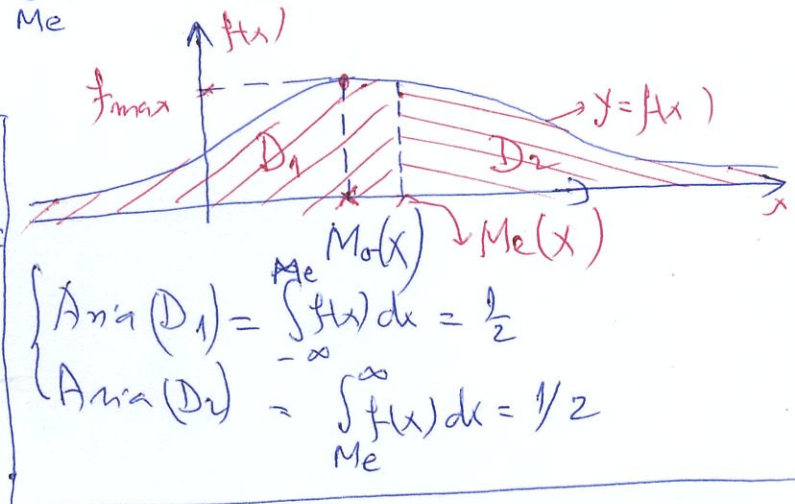 Me
f(x)
fmax
y=f(x)
D1
D2
x
Mo(X)
Me(X)
{Aria(D1) = ∫_{-∞}^{Me} f(x) dx = 1/2
Aria(D2) = ∫_{Me}^{∞} f(x) dx = 1/2